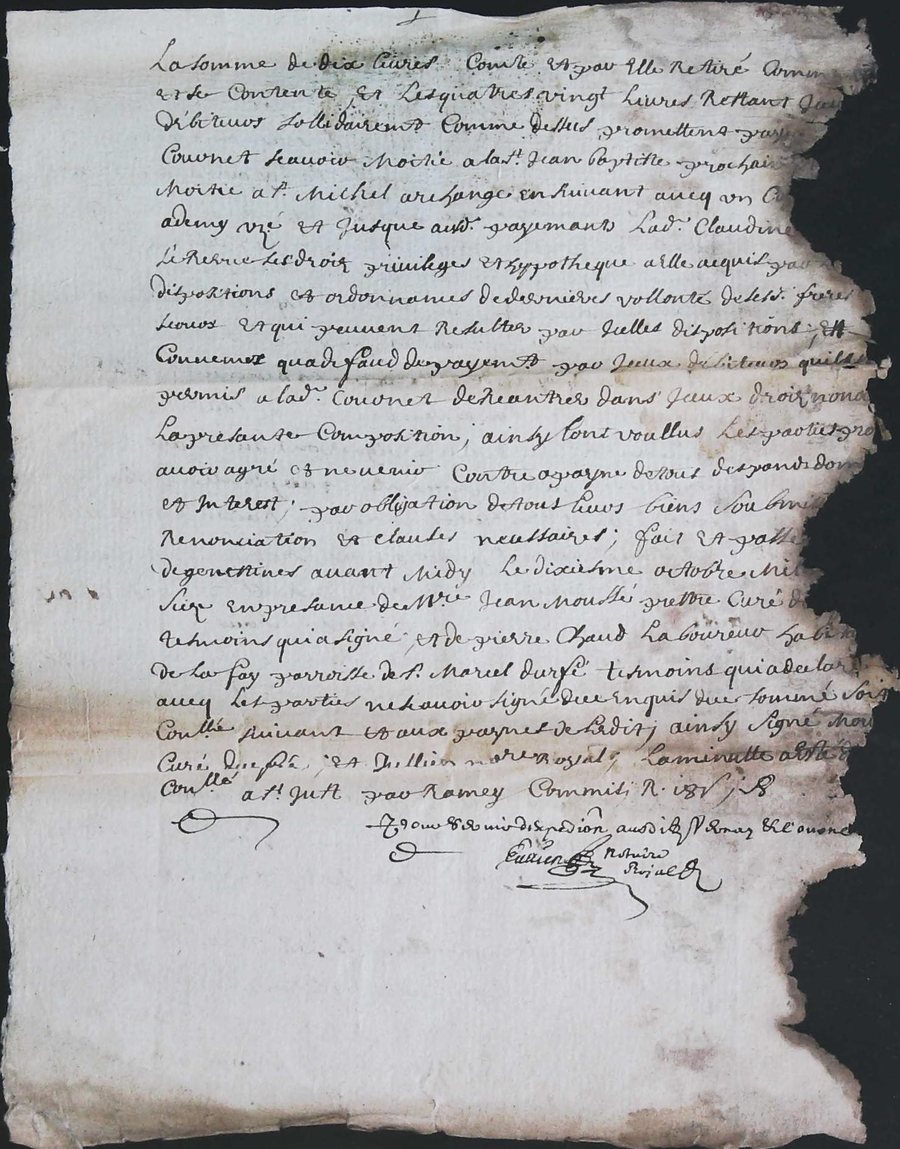 La somme de dix livres Comté et par Elle Retiré Comm
et se Contente, et Les quatres vingt Livres Restant
débiteurs sollidairemt Comme dessus promettent
Couonet scavoir Moitié a la st Jean baptiste prochai
Moitie a st Michel archange En suivant aucq un
ademy et Jusque payemants Lad. Claudine
se Reserve Ses droix privileges et hypotheque a elle acquis par
dispositions et ordonnances de dernieres vollonté de ses frères
et qui peuvent Resulter par Jcelles dispositions; Est
Convenu qua deffaud de payemt par Jceux débiteurs quil
permis a lad. Couonet de Reantrer dans Jceux droix nono
La presante Composition; ainsy Lont voullus Les parties pro
avoir agré et ne venir Contre a payne de tous despans dom
et Interest; par obligation de tous leurs biens Soubmis
Renonciation et clauses necessaires; fait et passe
de genestines avant Midy Le dixiesme octobre Mil
Six En presance de Mre Jean Moussé prestre Curé de
tesmoins qui a signé, et de pierre Chaud Laboureur habi
de La fay parroisse de St. Marcel durfé tesmoins qui a declaré
aucq Les parties ne scavoir signé de ce Enquis de ce sommé Soit
Conllé suivant et aux paynes de Ledit; ainsy Signé Mou
Curé ; et Dullion nore Royal; La minutte a Esté
Conllé a st Just par Ramey Commis; R. 18s;
Pour expedion ausdits et Couone
Notaire
Roial